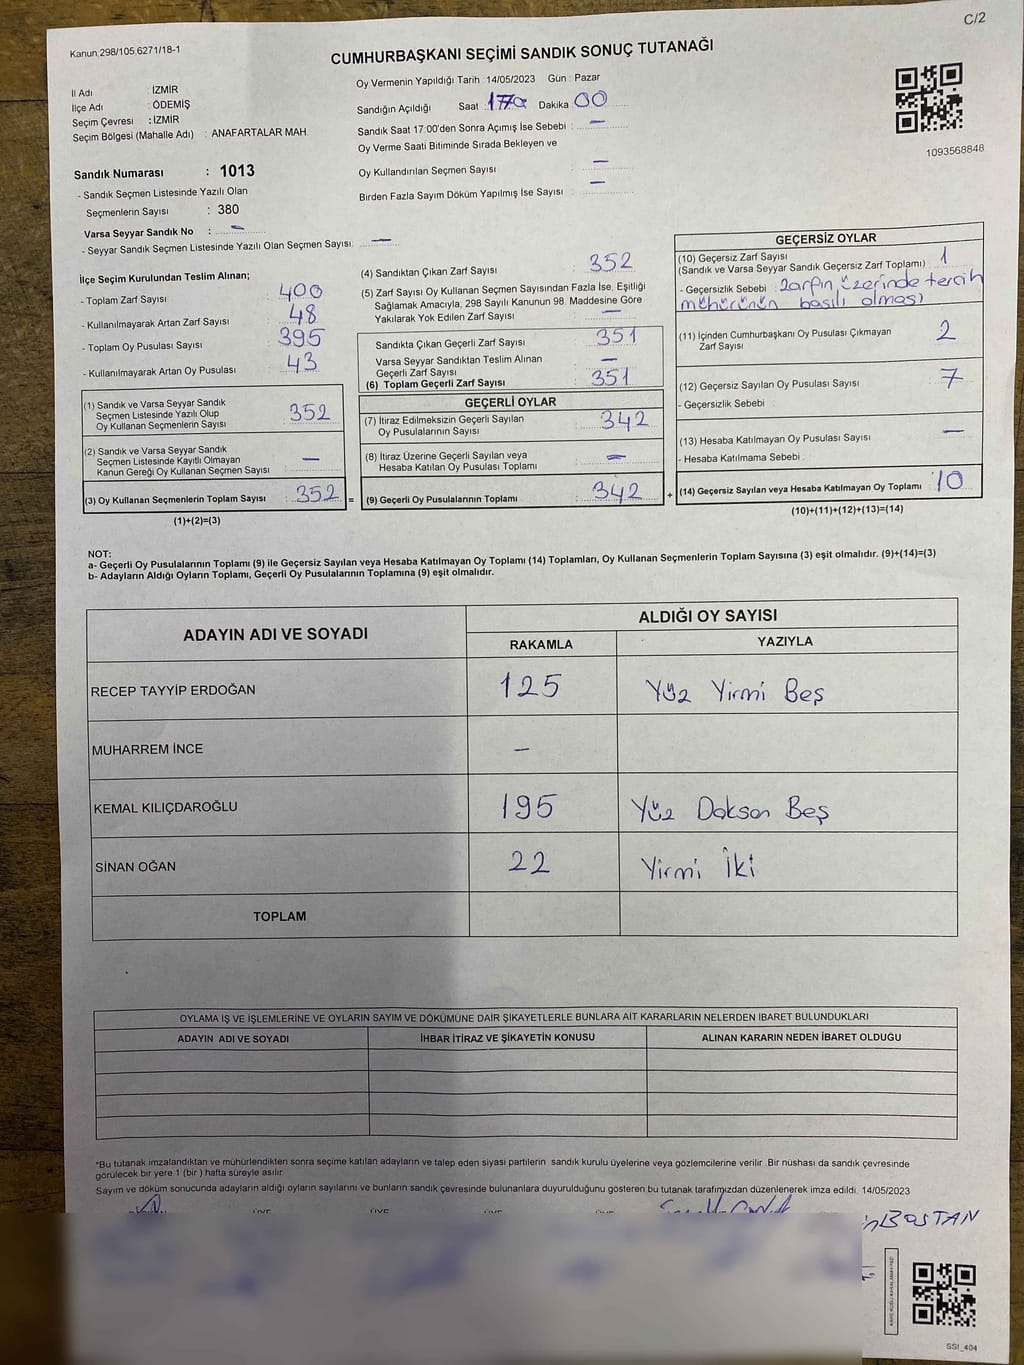 C/2
Kanun 298/105,6271/18-1
CUMHURBAŞKANI SEÇİMİ SANDIK SONUÇ TUTANAĞI
İl Adı : İZMİR
İlçe Adı : ÖDEMİŞ
Seçim Çevresi : İZMİR
Seçim Bölgesi (Mahalle Adı) : ANAFARTALAR MAH.
Oy Vermenin Yapıldığı Tarih : 14/05/2023 Gün : Pazar
Sandığın Açıldığı Saat 17 Dakika 00
Sandık Saat 17:00'den Sonra Açımış İse Sebebi : —
Oy Verme Saati Bitiminde Sırada Bekleyen ve
Oy Kullandırılan Seçmen Sayısı —
Birden Fazla Sayım Döküm Yapılmış İse Sayısı : —
1093568848
Sandık Numarası : 1013
- Sandık Seçmen Listesinde Yazılı Olan
Seçmenlerin Sayısı : 380
Varsa Seyyar Sandık No : —
- Seyyar Sandık Seçmen Listesinde Yazılı Olan Seçmen Sayısı: —
İlçe Seçim Kurulundan Teslim Alınan;
- Toplam Zarf Sayısı : 400
- Kullanılmayarak Artan Zarf Sayısı : 48
- Toplam Oy Pusulası Sayısı : 395
- Kullanılmayarak Artan Oy Pusulası : 43
(1) Sandık ve Varsa Seyyar Sandık
Seçmen Listesinde Yazılı Olup
Oy Kullanan Seçmenlerin Sayısı : 352
(2) Sandık ve Varsa Seyyar Sandık
Seçmen Listesinde Kayıtlı Olmayan
Kanun Gereği Oy Kullanan Seçmen Sayısı : —
(3) Oy Kullanan Seçmenlerin Toplam Sayısı : 352 =
(1)+(2)=(3)
(4) Sandıktan Çıkan Zarf Sayısı : 352
(5) Zarf Sayısı Oy Kullanan Seçmen Sayısından Fazla İse, Eşitliği
Sağlamak Amacıyla, 298 Sayılı Kanunun 98. Maddesine Göre
Yakılarak Yok Edilen Zarf Sayısı : —
Sandıkta Çıkan Geçerli Zarf Sayısı : 351
Varsa Seyyar Sandıktan Teslim Alınan
Geçerli Zarf Sayısı : —
(6) Toplam Geçerli Zarf Sayısı : 351
GEÇERLİ OYLAR
(7) İtiraz Edilmeksizin Geçerli Sayılan
Oy Pusulalarının Sayısı : 342
(8) İtiraz Üzerine Geçerli Sayılan veya
Hesaba Katılan Oy Pusulası Toplamı : —
(9) Geçerli Oy Pusulalarının Toplamı : 342 +
GEÇERSİZ OYLAR
(10) Geçersiz Zarf Sayısı : 1
(Sandık ve Varsa Seyyar Sandık Geçersiz Zarf Toplamı)
- Geçersizlik Sebebi : Zarfın üzerinde tercih
mührünün basılı olması
(11) İçinden Cumhurbaşkanı Oy Pusulası Çıkmayan
Zarf Sayısı : 2
(12) Geçersiz Sayılan Oy Pusulası Sayısı : 7
- Geçersizlik Sebebi :
(13) Hesaba Katılmayan Oy Pusulası Sayısı : —
- Hesaba Katılmama Sebebi :
(14) Geçersiz Sayılan veya Hesaba Katılmayan Oy Toplamı : 10
(10)+(11)+(12)+(13)=(14)
NOT:
a- Geçerli Oy Pusulalarının Toplamı (9) ile Geçersiz Sayılan veya Hesaba Katılmayan Oy Toplamı (14) Toplamları, Oy Kullanan Seçmenlerin Toplam Sayısına (3) eşit olmalıdır. (9)+(14)=(3)
b- Adayların Aldığı Oyların Toplamı, Geçerli Oy Pusulalarının Toplamına (9) eşit olmalıdır.
ADAYIN ADI VE SOYADI ALDIĞI OY SAYISI
RAKAMLA YAZIYLA
RECEP TAYYİP ERDOĞAN 125 Yüz Yirmi Beş
MUHARREM İNCE —
KEMAL KILIÇDAROĞLU 195 Yüz Doksan Beş
SİNAN OĞAN 22 Yirmi İki
TOPLAM
OYLAMA İŞ VE İŞLEMLERİNE VE OYLARIN SAYIM VE DÖKÜMÜNE DAİR ŞİKAYETLERLE BUNLARA AİT KARARLARIN NELERDEN İBARET BULUNDUKLARI
ADAYIN ADI VE SOYADI İHBAR İTİRAZ VE ŞİKAYETİN KONUSU ALINAN KARARIN NEDEN İBARET OLDUĞU
*Bu tutanak imzalandıktan ve mühürlendikten sonra seçime katılan adayların ve talep eden siyasi partilerin sandık kurulu üyelerine veya gözlemcilerine verilir. Bir nüshası da sandık çevresinde
görülecek bir yere 1 (bir ) hafta süreyle asılır.
Sayım ve döküm sonucunda adayların aldığı oyların sayılarını ve bunların sandık çevresinde bulunanlara duyurulduğunu gösteren bu tutanak tarafımızdan düzenlenerek imza edildi. 14/05/2023
BOSTAN
SSI_404